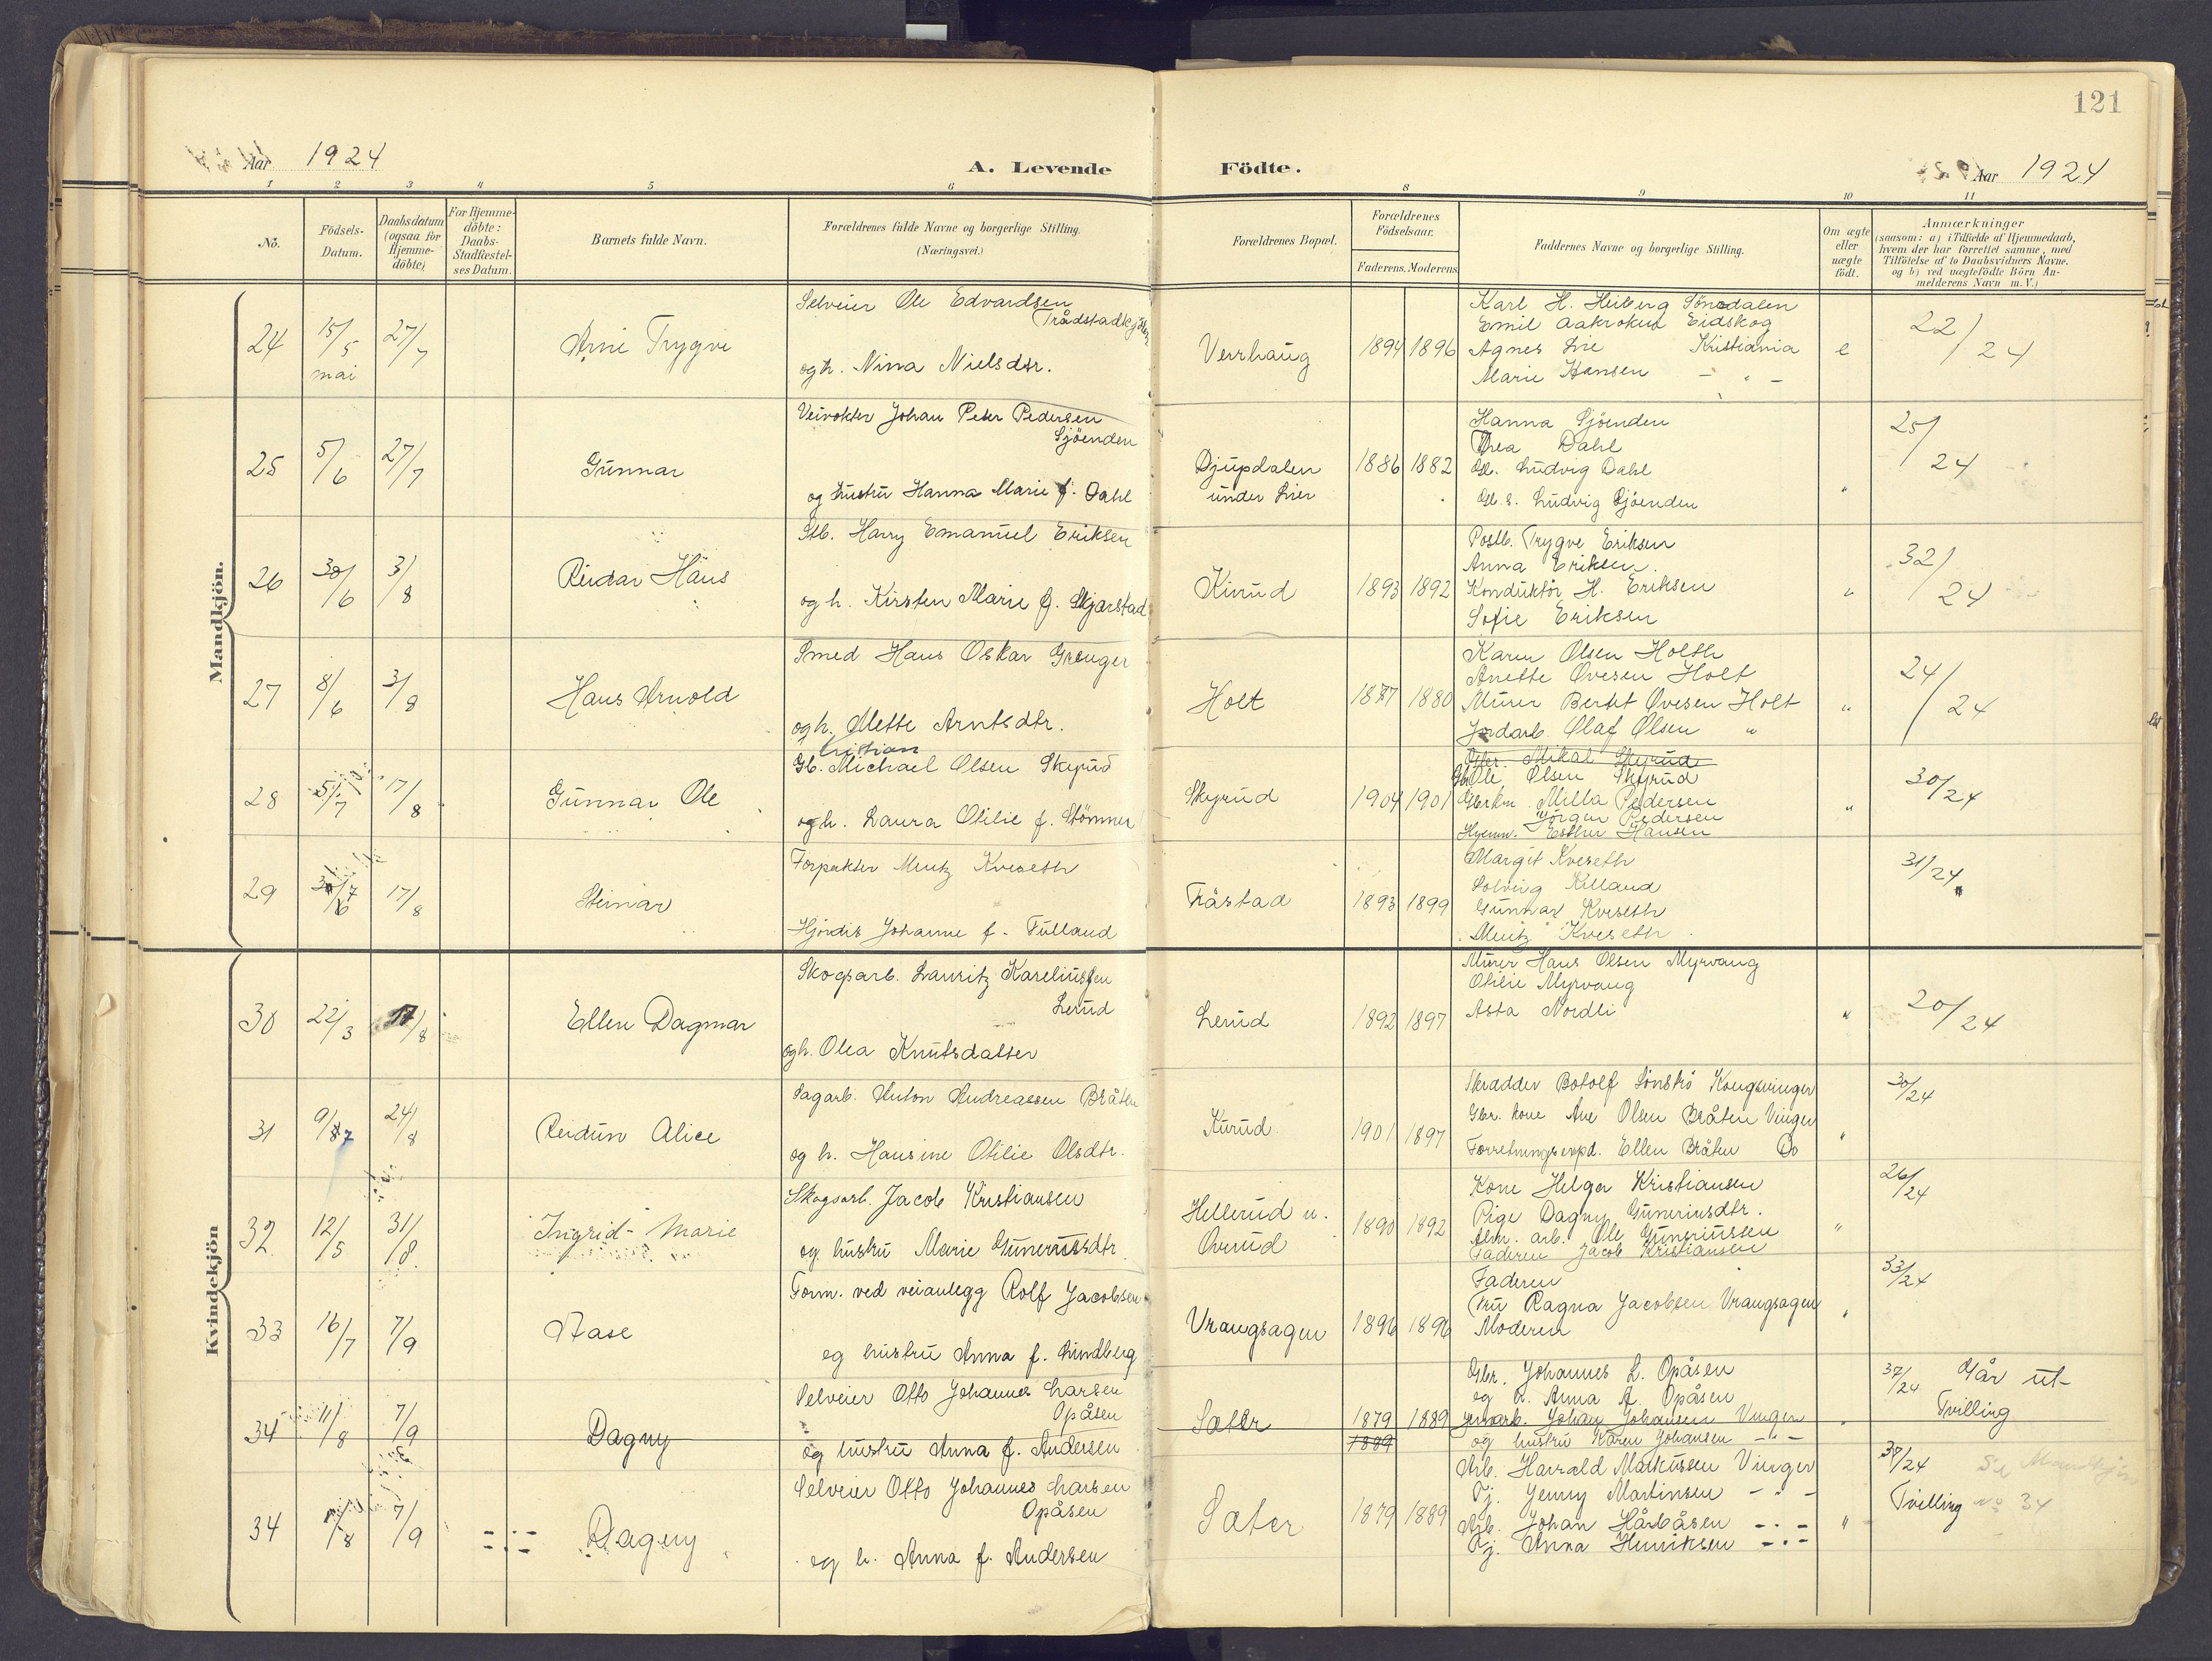 121
Aar 1924
A. Levende
Födte.
Aar 1924
1 2 3 4 5 6 8 9 10 11
No.
Födsels-
Datum.
Daabsdatum
(ogsaa for
Hjemme-
döbte)
For Hjemme-
döbte:
Daabs-
Stadfæstel-
ses Datum.
Barnets fulde Navn.
Forældrenes fulde Navne og borgerlige Stilling.
(Næringsvei.)
Forældrenes Bopæl.
Forældrenes
Födselsaar.
Faderens. Moderens.
Faddernes Navne og borgerlige Stilling.
Om ægte
eller
uægte
födt.
Anmærkninger
(saasom: a) i Tilfælde af Hjemmedaab,
hvem der har forrettet samme, med
Tilföielse af to Daabsvidners Navne.
og b) ved uægtefödte Börn An-
melderens Navn m. V.)
Mandkjön.
24 15/5 mai 27/7 Arne Trygve
Selveier Ole Edvardsen
og h. Nina Nielsdtr.
1894 1896
Karl H. Heiberg
Emil Aakroken Eidskog
Agnes Lie Kristiania
Marie Hansen - " -
e
22/24
25 5/6 27/7 Gunnar
Veivokter Johan Peter Pedersen
Sjöenden
og hustru Hanna Marie f. Dahl
Djupdalen
under Lier
1886 1882
Hanna Sjöenden
Thea Dahl
Ludvig Dahl
Ludvig Sjöenden
"
25/24
26 30/6 3/8 Reidar Hans
Stb. Harry Emanuel Eriksen
og h. Kirsten Marie f. Skjarstad
Kirud
1893 1892
Postb. Trygve Eriksen
Anna Eriksen.
Konduktör H. Eriksen
Sofie Eriksen
"
32/24
27 8/6 3/8 Hans Arnold
Smed Hans Oskar Grenger
og h. Mette Arntsdtr.
Holt
1877 1880
Karen Olsen Holth
Anette Ovesen Holt
Murer Bernt Ovesen Holt
Jordarb. Olaf Olsen "
"
24/24
28 5/7 17/8 Gunnar Ole
Kristian
Gb. Michael Olsen Skyrud
og h. Laura Otilie f. Stömner
Skyrud
1904 1901
Gbr. Mikal Skyrud
Gb. Ole Olsen Skyrud
Gbrkn. Milla Pedersen
Jörgen Pedersen
Hjemm. Esther Hansen
"
30/24
29 17/8 Steinar
Forpakter Mentz Kveseth
Hjördis Johanne f. Fulland
Fåstad
1893 1899
Margit Kveseth
Solveig
Gunnar Kveseth
Mentz Kveseth
31/24
Kvindekjön
30 22/3 17/8 Ellen Dagmar
Skogsarb. Lauritz Kareliussen
Lerud
og h. Olea Knutsdatter
Lerud
1892 1897
Murer Hans Olsen Myrvang
Otilie Myrvang
Asta Nordli
"
20/24
31 9/7 24/8 Reidun Alice
Sagarb. Anton Andreassen Bråten
og h. Hansine Otilie Olsdtr.
Kurud
1901 1897
Skrædder Botolf Sönsko Kongsvinger
Gbr. kone Ane Olsen Bråten Vinger
Forretningsexpd. Ellen Bråten Do
"
30/24
32 12/5 31/8 Ingrid-Marie
Skogsarb. Jacob Kristiansen
og hustru Marie Guneriusdtr.
Hellerud u.
Overud
1890 1892
Kone Helga Kristiansen
Pige Dagny Guneriusdtr.
Alm. arb. Ole Guneriussen
Faderen Jacob Kristiansen
"
26/24
33 16/7 7/9 Aase
Form. ved veianlegg Rolf Jacobsen
og hustru Anna f. Lindberg
Vrangsagen
1896 1896
Faderen
Fru Ragna Jacobsen Vrangsagen
Moderen
"
33/24
34 11/8 7/9 Dagny
Selveier Otto Johannes Larsen
Opåsen
og hustru Anna f. Andersen
Sæter
1879 1889
1889
Gbr. Johannes L. Opåsen
og h. Anna A. Opåsen
Johan Johansen Vinger
og hustru Karen Johansen - " -
37/24 Går ut-
Tvilling
34 11/8 7/9 Dagny
Selveier Otto Johannes Larsen
Opåsen
og h. Anna f. Andersen
Sæter
1879 1889
Arb. Harald Markussen Vinger
Pj. Jenny Martinsen - " -
Arb. Johan Hårbåsen - " -
Pj. Anna Henriksen - " -
"
37/24 Se Mandkjön
Tvilling No 34